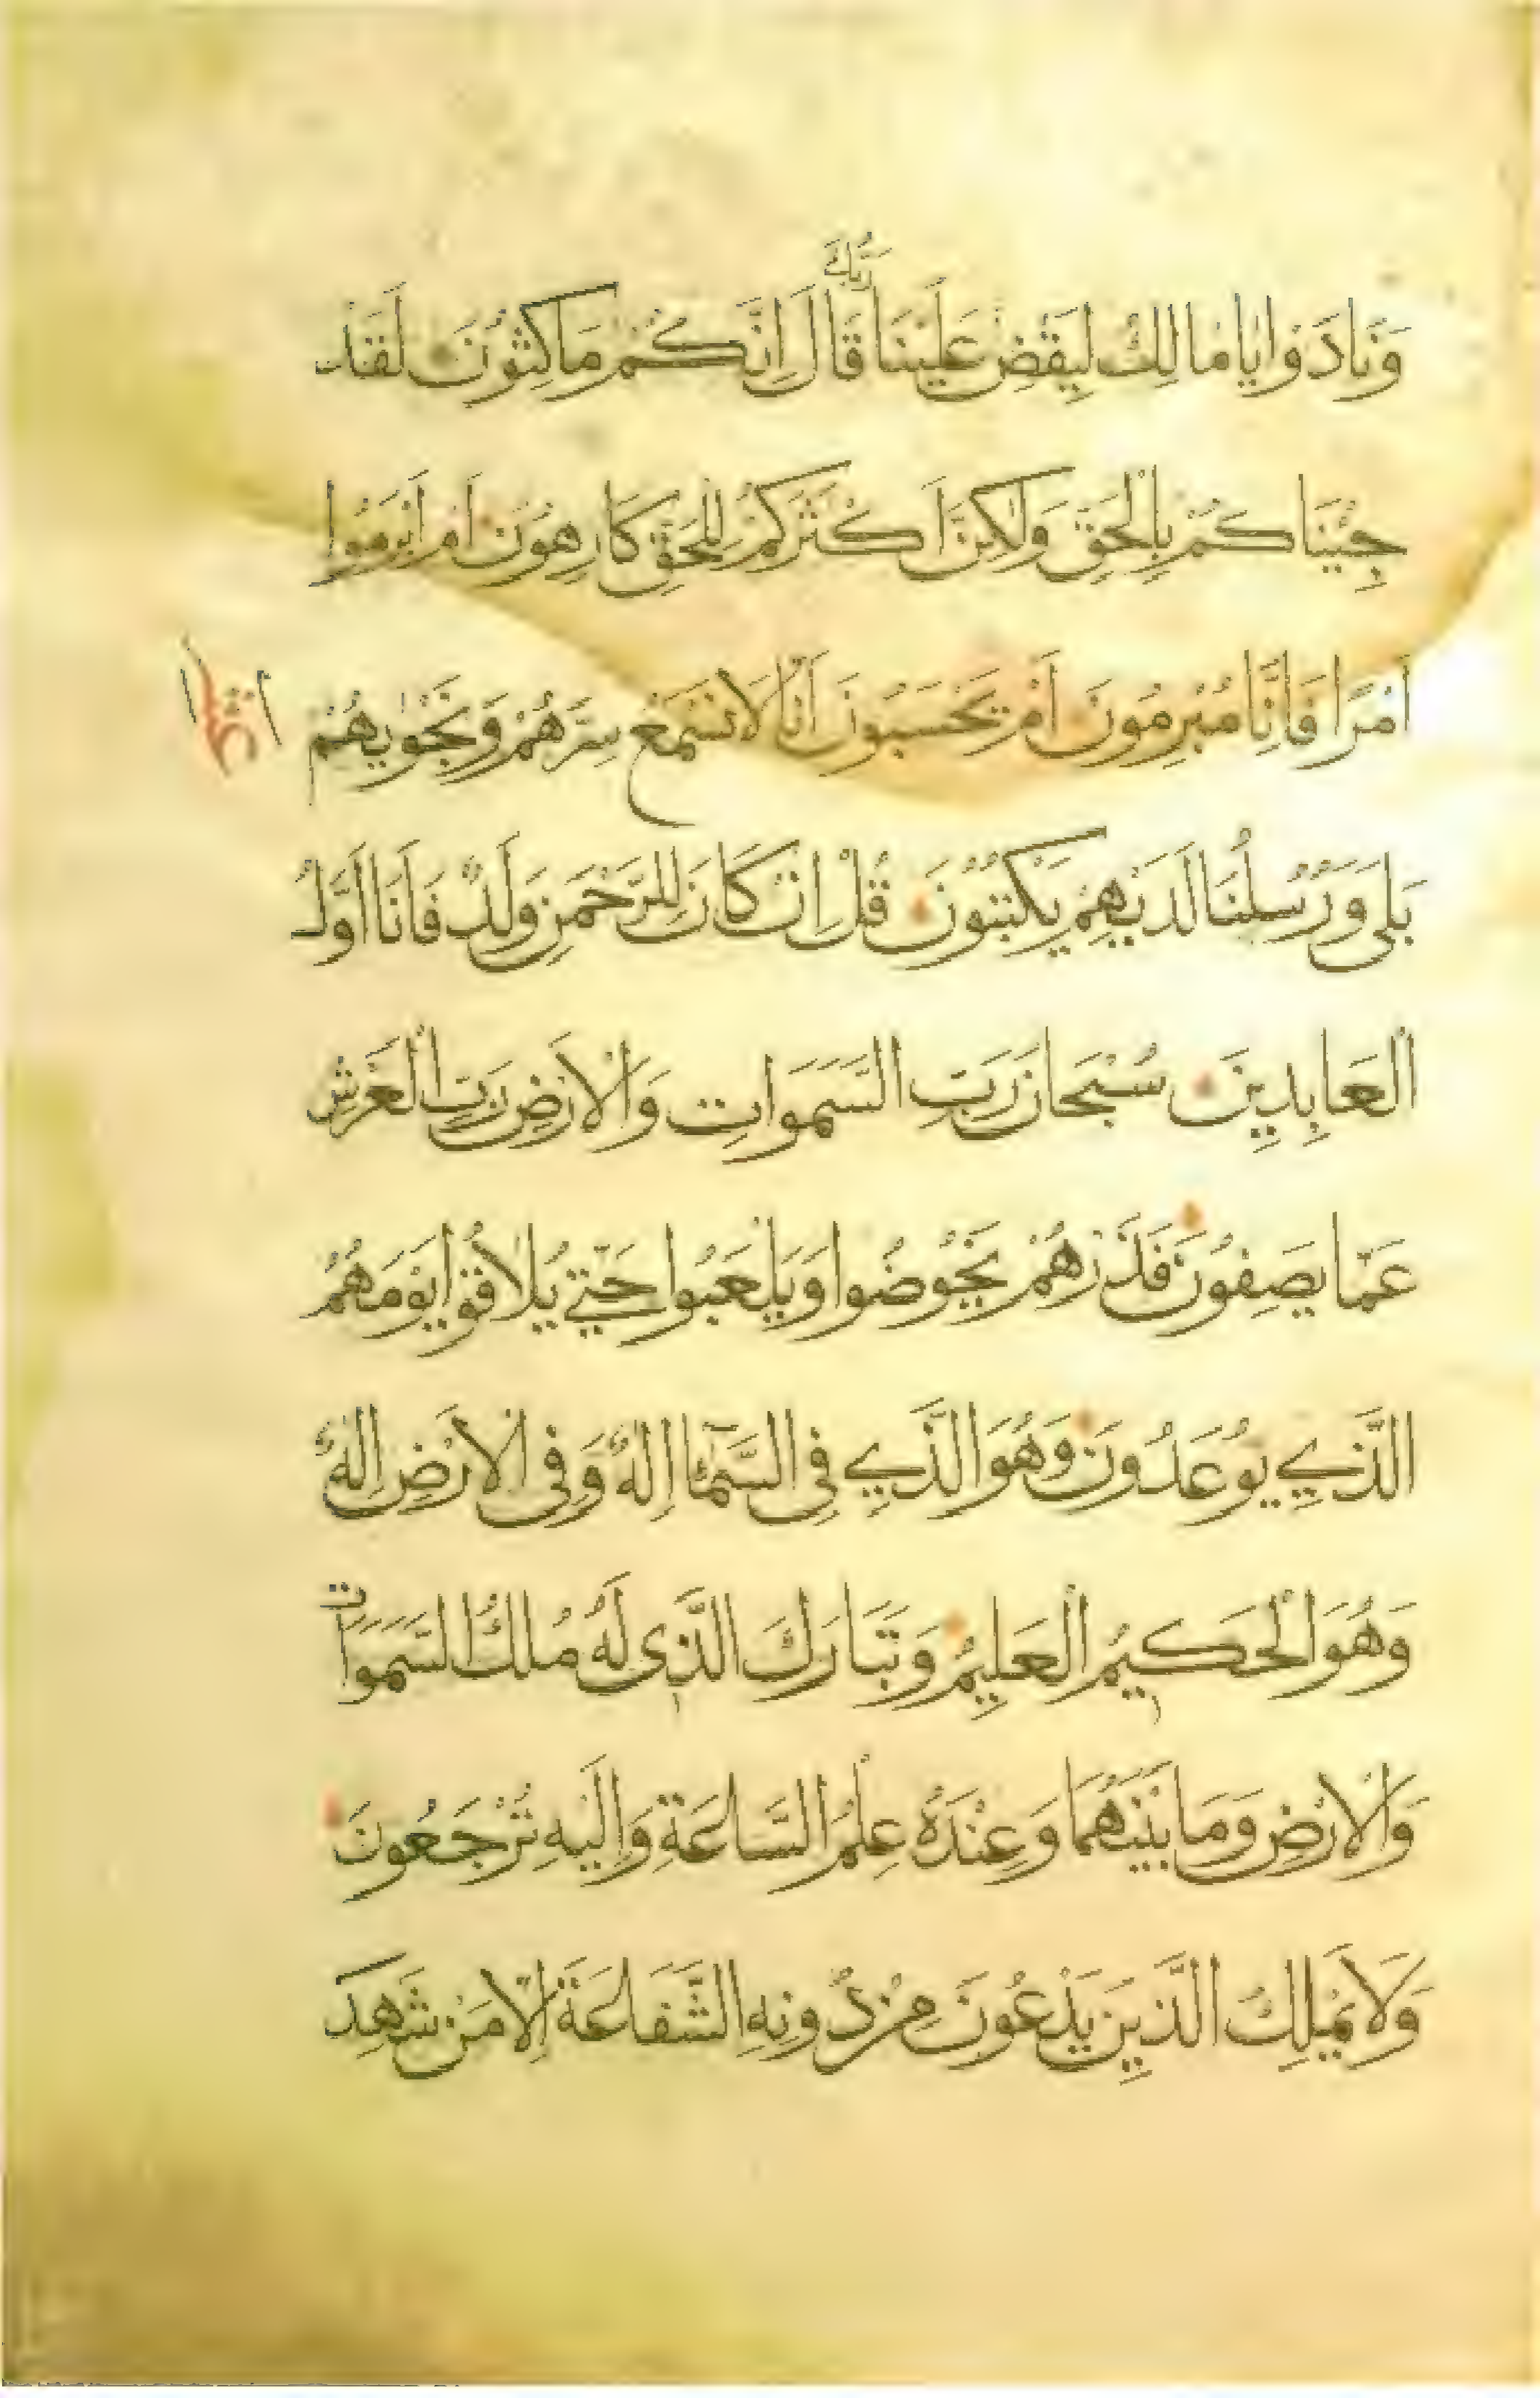 رَبُّكَ
وَنَادَوْا يَا مَالِكُ لِيَقْضِ عَلَيْنَا قَالَ اِنَّكُمْ مَاكِثُونَ لَقَدْ
جِئْنَاكُمْ بِالْحَقِّ وَلٰكِنَّ اَكْثَرَكُمْ لِلْحَقِّ كَارِهُونَ اَمْ اَبْرَمُوا
اَمْرًا فَاِنَّا مُبْرِمُونَ اَمْ يَحْسَبُونَ اَنَّا لَا نَسْمَعُ سِرَّهُمْ وَنَجْوٰيهُمْ
بَلٰى وَرُسُلُنَا لَدَيْهِمْ يَكْتُبُونَ قُلْ اِنْ كَانَ لِلرَّحْمٰنِ وَلَدٌ فَاَنَا اَوَّلُ
الْعَابِدِينَ سُبْحَانَ رَبِّ السَّمَوَاتِ وَالْاَرْضِ رَبِّ الْعَرْشِ
عَمَّا يَصِفُونَ فَذَرْهُمْ يَخُوضُوا وَيَلْعَبُوا حَتّٰى يُلَاقُوا يَوْمَهُمُ
الَّذِي يُوعَدُونَ وَهُوَ الَّذِي فِي السَّمَاءِ اِلٰهٌ وَفِي الْاَرْضِ اِلٰهٌ
وَهُوَ الْحَكِيمُ الْعَلِيمُ وَتَبَارَكَ الَّذِي لَهُ مُلْكُ السَّمَوَاتِ
وَالْاَرْضِ وَمَا بَيْنَهُمَا وَعِنْدَهُ عِلْمُ السَّاعَةِ وَاِلَيْهِ تُرْجَعُونَ
وَلَا يَمْلِكُ الَّذِينَ يَدْعُونَ مِنْ دُونِهِ الشَّفَاعَةَ اِلَّا مَنْ شَهِدَ